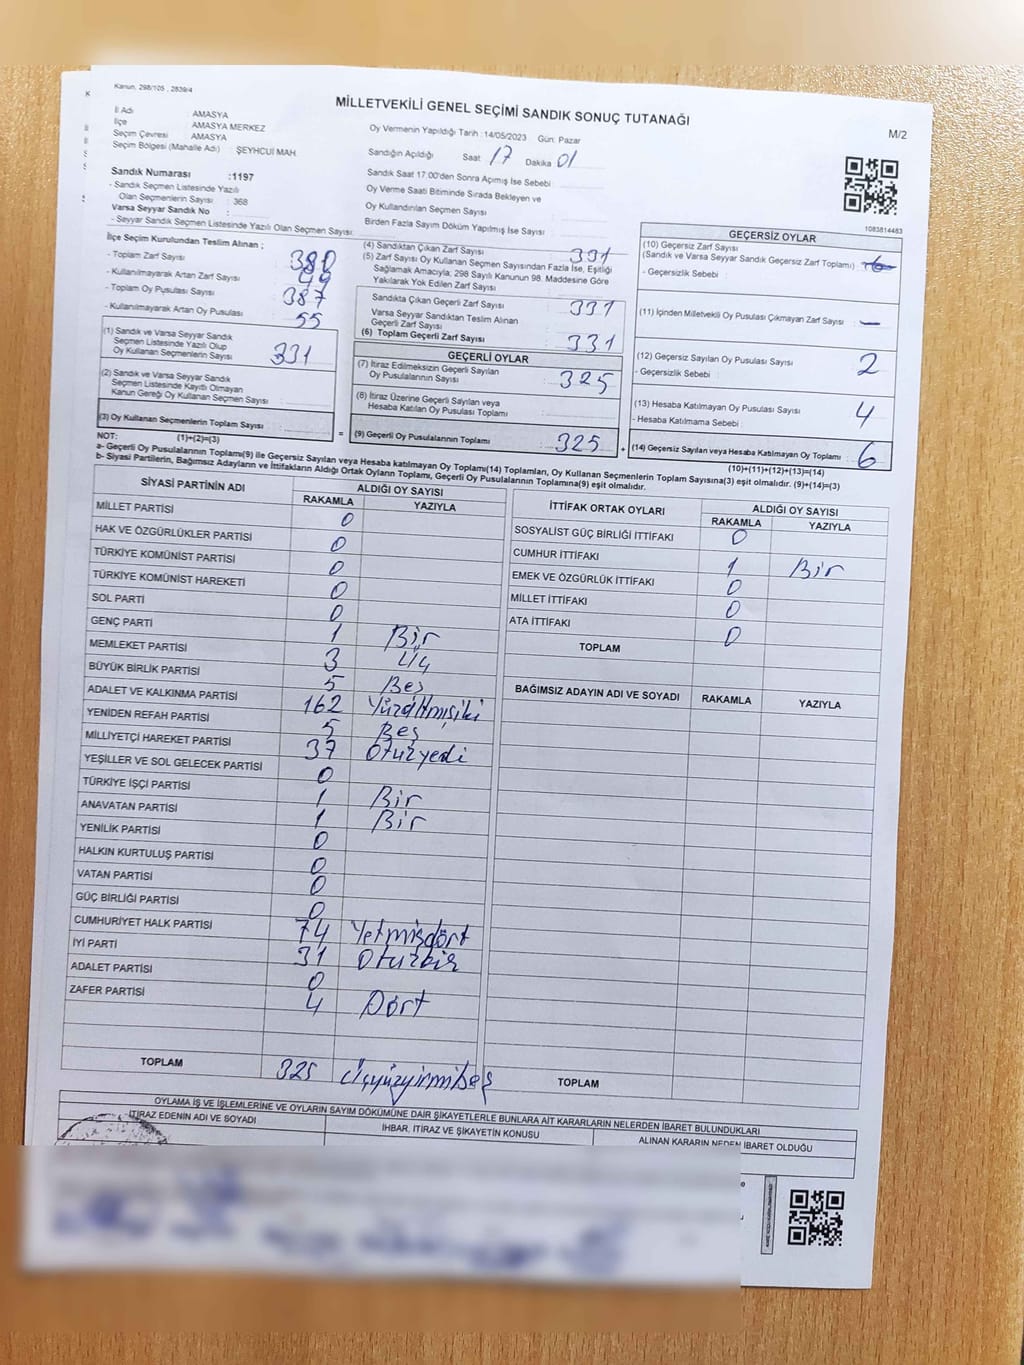 Kanun, 298/105 , 2839/4
MİLLETVEKİLİ GENEL SEÇİMİ SANDIK SONUÇ TUTANAĞI
M/2
İl Adı : AMASYA
İlçe : AMASYA MERKEZ
Seçim Çevresi : AMASYA
Seçim Bölgesi (Mahalle Adı) : ŞEYHCUİ MAH.
Oy Vermenin Yapıldığı Tarih :14/05/2023 Gün: Pazar
Sandığın Açıldığı Saat 17 Dakika 01
Sandık Saat 17:00'den Sonra Açımış İse Sebebi :
Oy Verme Saati Bitiminde Sırada Bekleyen ve
Oy Kullandırılan Seçmen Sayısı :
Birden Fazla Sayım Döküm Yapılmış İse Sayısı :
Sandık Numarası :1197
- Sandık Seçmen Listesinde Yazılı
Olan Seçmenlerin Sayısı : 368
Varsa Seyyar Sandık No :
- Seyyar Sandık Seçmen Listesinde Yazılı Olan Seçmen Sayısı:
1083814483
İlçe Seçim Kurulundan Teslim Alınan ;
- Toplam Zarf Sayısı : 380
- Kullanılmayarak Artan Zarf Sayısı : 49
- Toplam Oy Pusulası Sayısı : 387
- Kullanılmayarak Artan Oy Pusulası : 55
(1) Sandık ve Varsa Seyyar Sandık
Seçmen Listesinde Yazılı Olup
Oy Kullanan Seçmenlerin Sayısı : 331
(2) Sandık ve Varsa Seyyar Sandık
Seçmen Listesinde Kayıtlı Olmayan
Kanun Gereği Oy Kullanan Seçmen Sayısı :
(3) Oy Kullanan Seçmenlerin Toplam Sayısı :
(1)+(2)=(3)
(4) Sandıktan Çıkan Zarf Sayısı : 331
(5) Zarf Sayısı Oy Kullanan Seçmen Sayısından Fazla İse, Eşitliği
Sağlamak Amacıyla, 298 Sayılı Kanunun 98. Maddesine Göre
Yakılarak Yok Edilen Zarf Sayısı :
Sandıkta Çıkan Geçerli Zarf Sayısı : 331
Varsa Seyyar Sandıktan Teslim Alınan
Geçerli Zarf Sayısı :
(6) Toplam Geçerli Zarf Sayısı : 331
GEÇERLİ OYLAR
(7) İtiraz Edilmeksizin Geçerli Sayılan
Oy Pusulalarının Sayısı : 325
(8) İtiraz Üzerine Geçerli Sayılan veya
Hesaba Katılan Oy Pusulası Toplamı :
= (9) Geçerli Oy Pusulalarının Toplamı : 325 +
GEÇERSİZ OYLAR
(10) Geçersiz Zarf Sayısı
(Sandık ve Varsa Seyyar Sandık Geçersiz Zarf Toplamı) :
- Geçersizlik Sebebi :
(11) İçinden Milletvekili Oy Pusulası Çıkmayan Zarf Sayısı : —
(12) Geçersiz Sayılan Oy Pusulası Sayısı : 2
- Geçersizlik Sebebi :
(13) Hesaba Katılmayan Oy Pusulası Sayısı : 4
- Hesaba Katılmama Sebebi :
(14) Geçersiz Sayılan veya Hesaba Katılmayan Oy Toplamı : 6
(10)+(11)+(12)+(13)=(14)
NOT:
a- Geçerli Oy Pusulaları Toplamı(9) ile Geçersiz Sayılan veya Hesaba katılmayan Oy Toplamı(14) Toplamları, Oy Kullanan Seçmenlerin Toplam Sayısına(3) eşit olmalıdır. (9)+(14)=(3)
b- Siyasi Partilerin, Bağımsız Adayların ve İttifakların Aldığı Ortak Oyların Toplamı, Geçerli Oy Pusulalarının Toplamına(9) eşit olmalıdır.
SİYASİ PARTİNİN ADI ALDIĞI OY SAYISI
RAKAMLA YAZIYLA
MİLLET PARTİSİ 0
HAK VE ÖZGÜRLÜKLER PARTİSİ 0
TÜRKİYE KOMÜNİST PARTİSİ 0
TÜRKİYE KOMÜNİST HAREKETİ 0
SOL PARTİ 0
GENÇ PARTİ 1 Bir
MEMLEKET PARTİSİ 3 Üç
BÜYÜK BİRLİK PARTİSİ 5 Beş
ADALET VE KALKINMA PARTİSİ 162 Yüzaltmışiki
YENİDEN REFAH PARTİSİ 5 Beş
MİLLİYETÇİ HAREKET PARTİSİ 37 Otuzyedi
YEŞİLLER VE SOL GELECEK PARTİSİ 0
TÜRKİYE İŞÇİ PARTİSİ 1 Bir
ANAVATAN PARTİSİ 1 Bir
YENİLİK PARTİSİ 0
HALKIN KURTULUŞ PARTİSİ 0
VATAN PARTİSİ 0
GÜÇ BİRLİĞİ PARTİSİ 0
CUMHURİYET HALK PARTİSİ 74 Yetmişdört
İYİ PARTİ 31 Otuzbir
ADALET PARTİSİ 0
ZAFER PARTİSİ 4 Dört
TOPLAM 325 Üçyüzyirmibeş
İTTİFAK ORTAK OYLARI ALDIĞI OY SAYISI
RAKAMLA YAZIYLA
SOSYALİST GÜÇ BİRLİĞİ İTTİFAKI 0
CUMHUR İTTİFAKI 1 Bir
EMEK VE ÖZGÜRLÜK İTTİFAKI 0
MİLLET İTTİFAKI 0
ATA İTTİFAKI 0
TOPLAM
BAĞIMSIZ ADAYIN ADI VE SOYADI RAKAMLA YAZIYLA
TOPLAM
OYLAMA İŞ VE İŞLEMLERİNE VE OYLARIN SAYIM DÖKÜMÜNE DAİR ŞİKAYETLERLE BUNLARA AİT KARARLARIN NELERDEN İBARET BULUNDUKLARI
İTİRAZ EDENİN ADI VE SOYADI İHBAR, İTİRAZ VE ŞİKAYETİN KONUSU ALINAN KARARIN NEDEN İBARET OLDUĞU